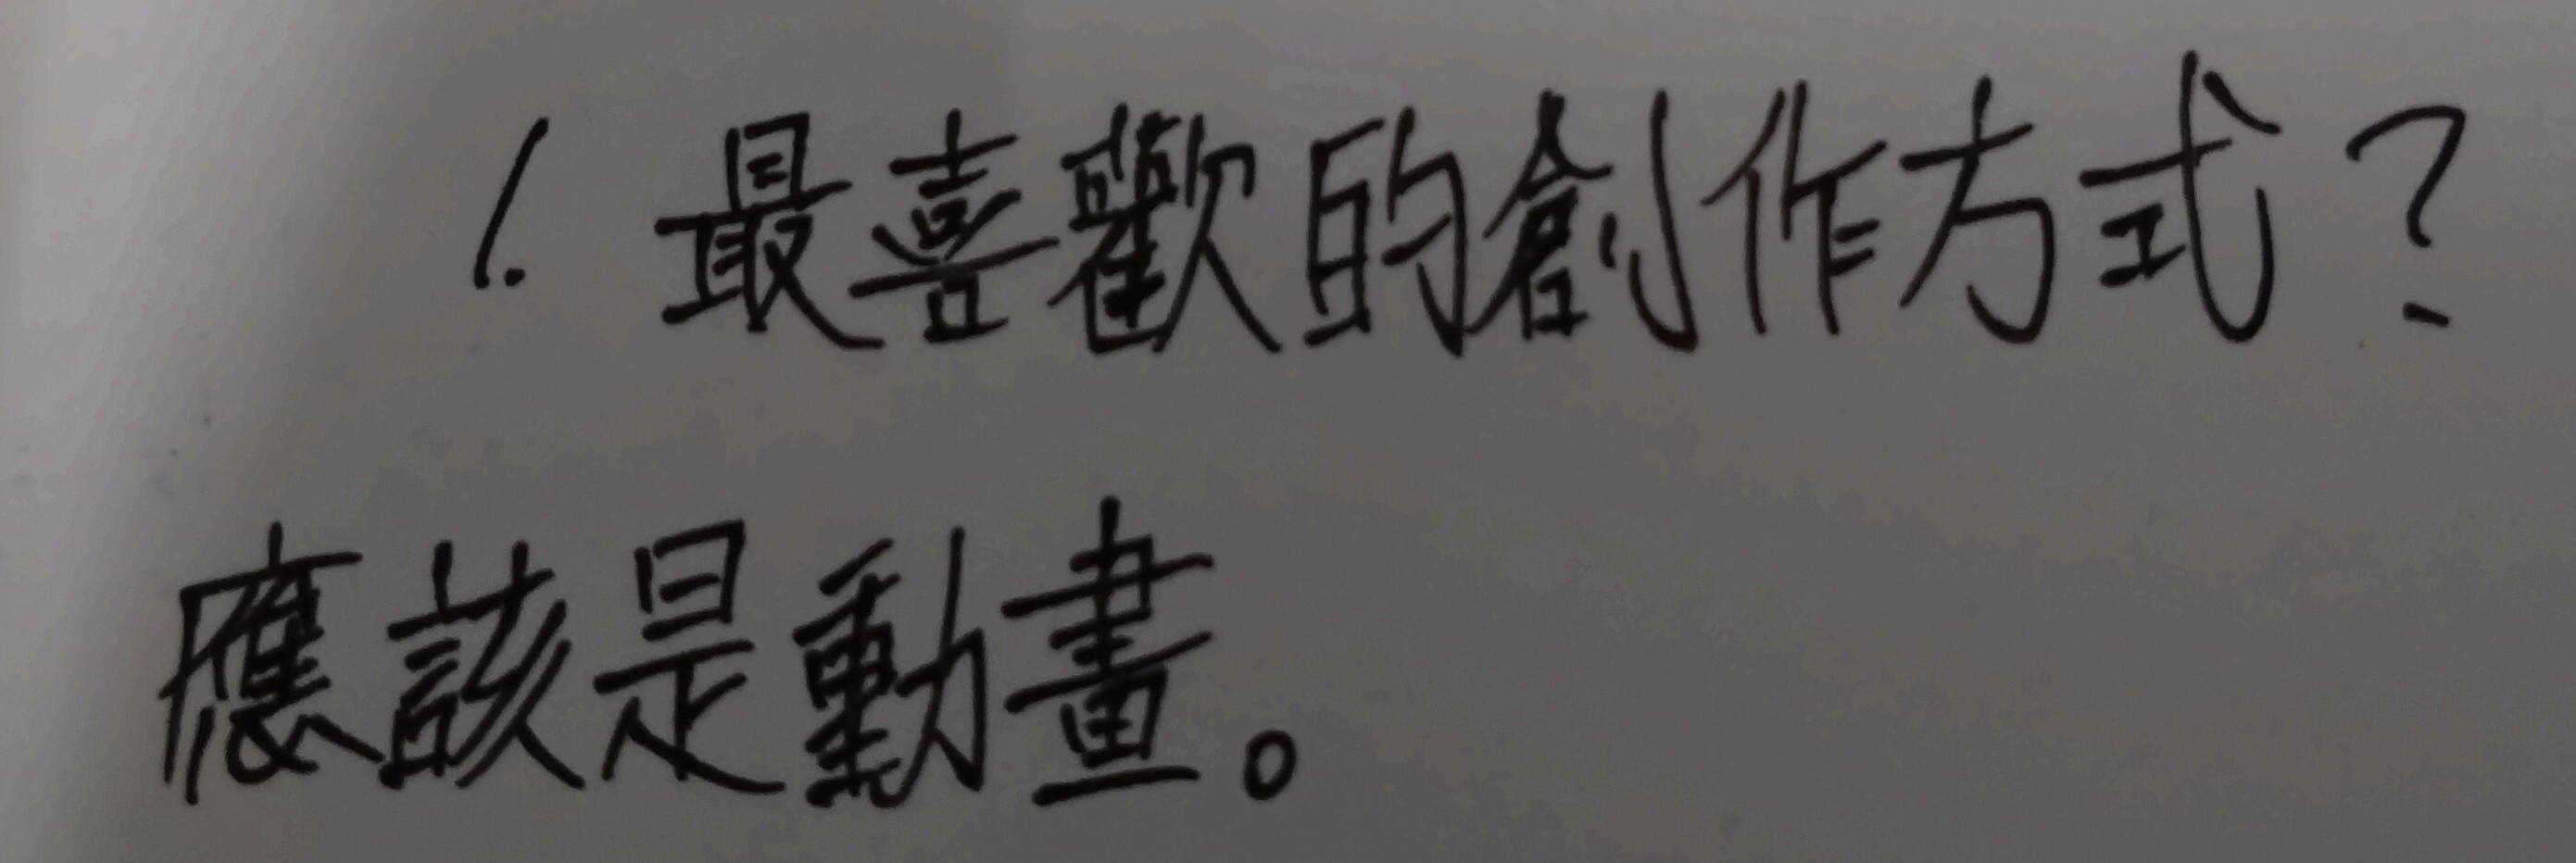 1. 最喜歡的創作方式?
應該是動畫。